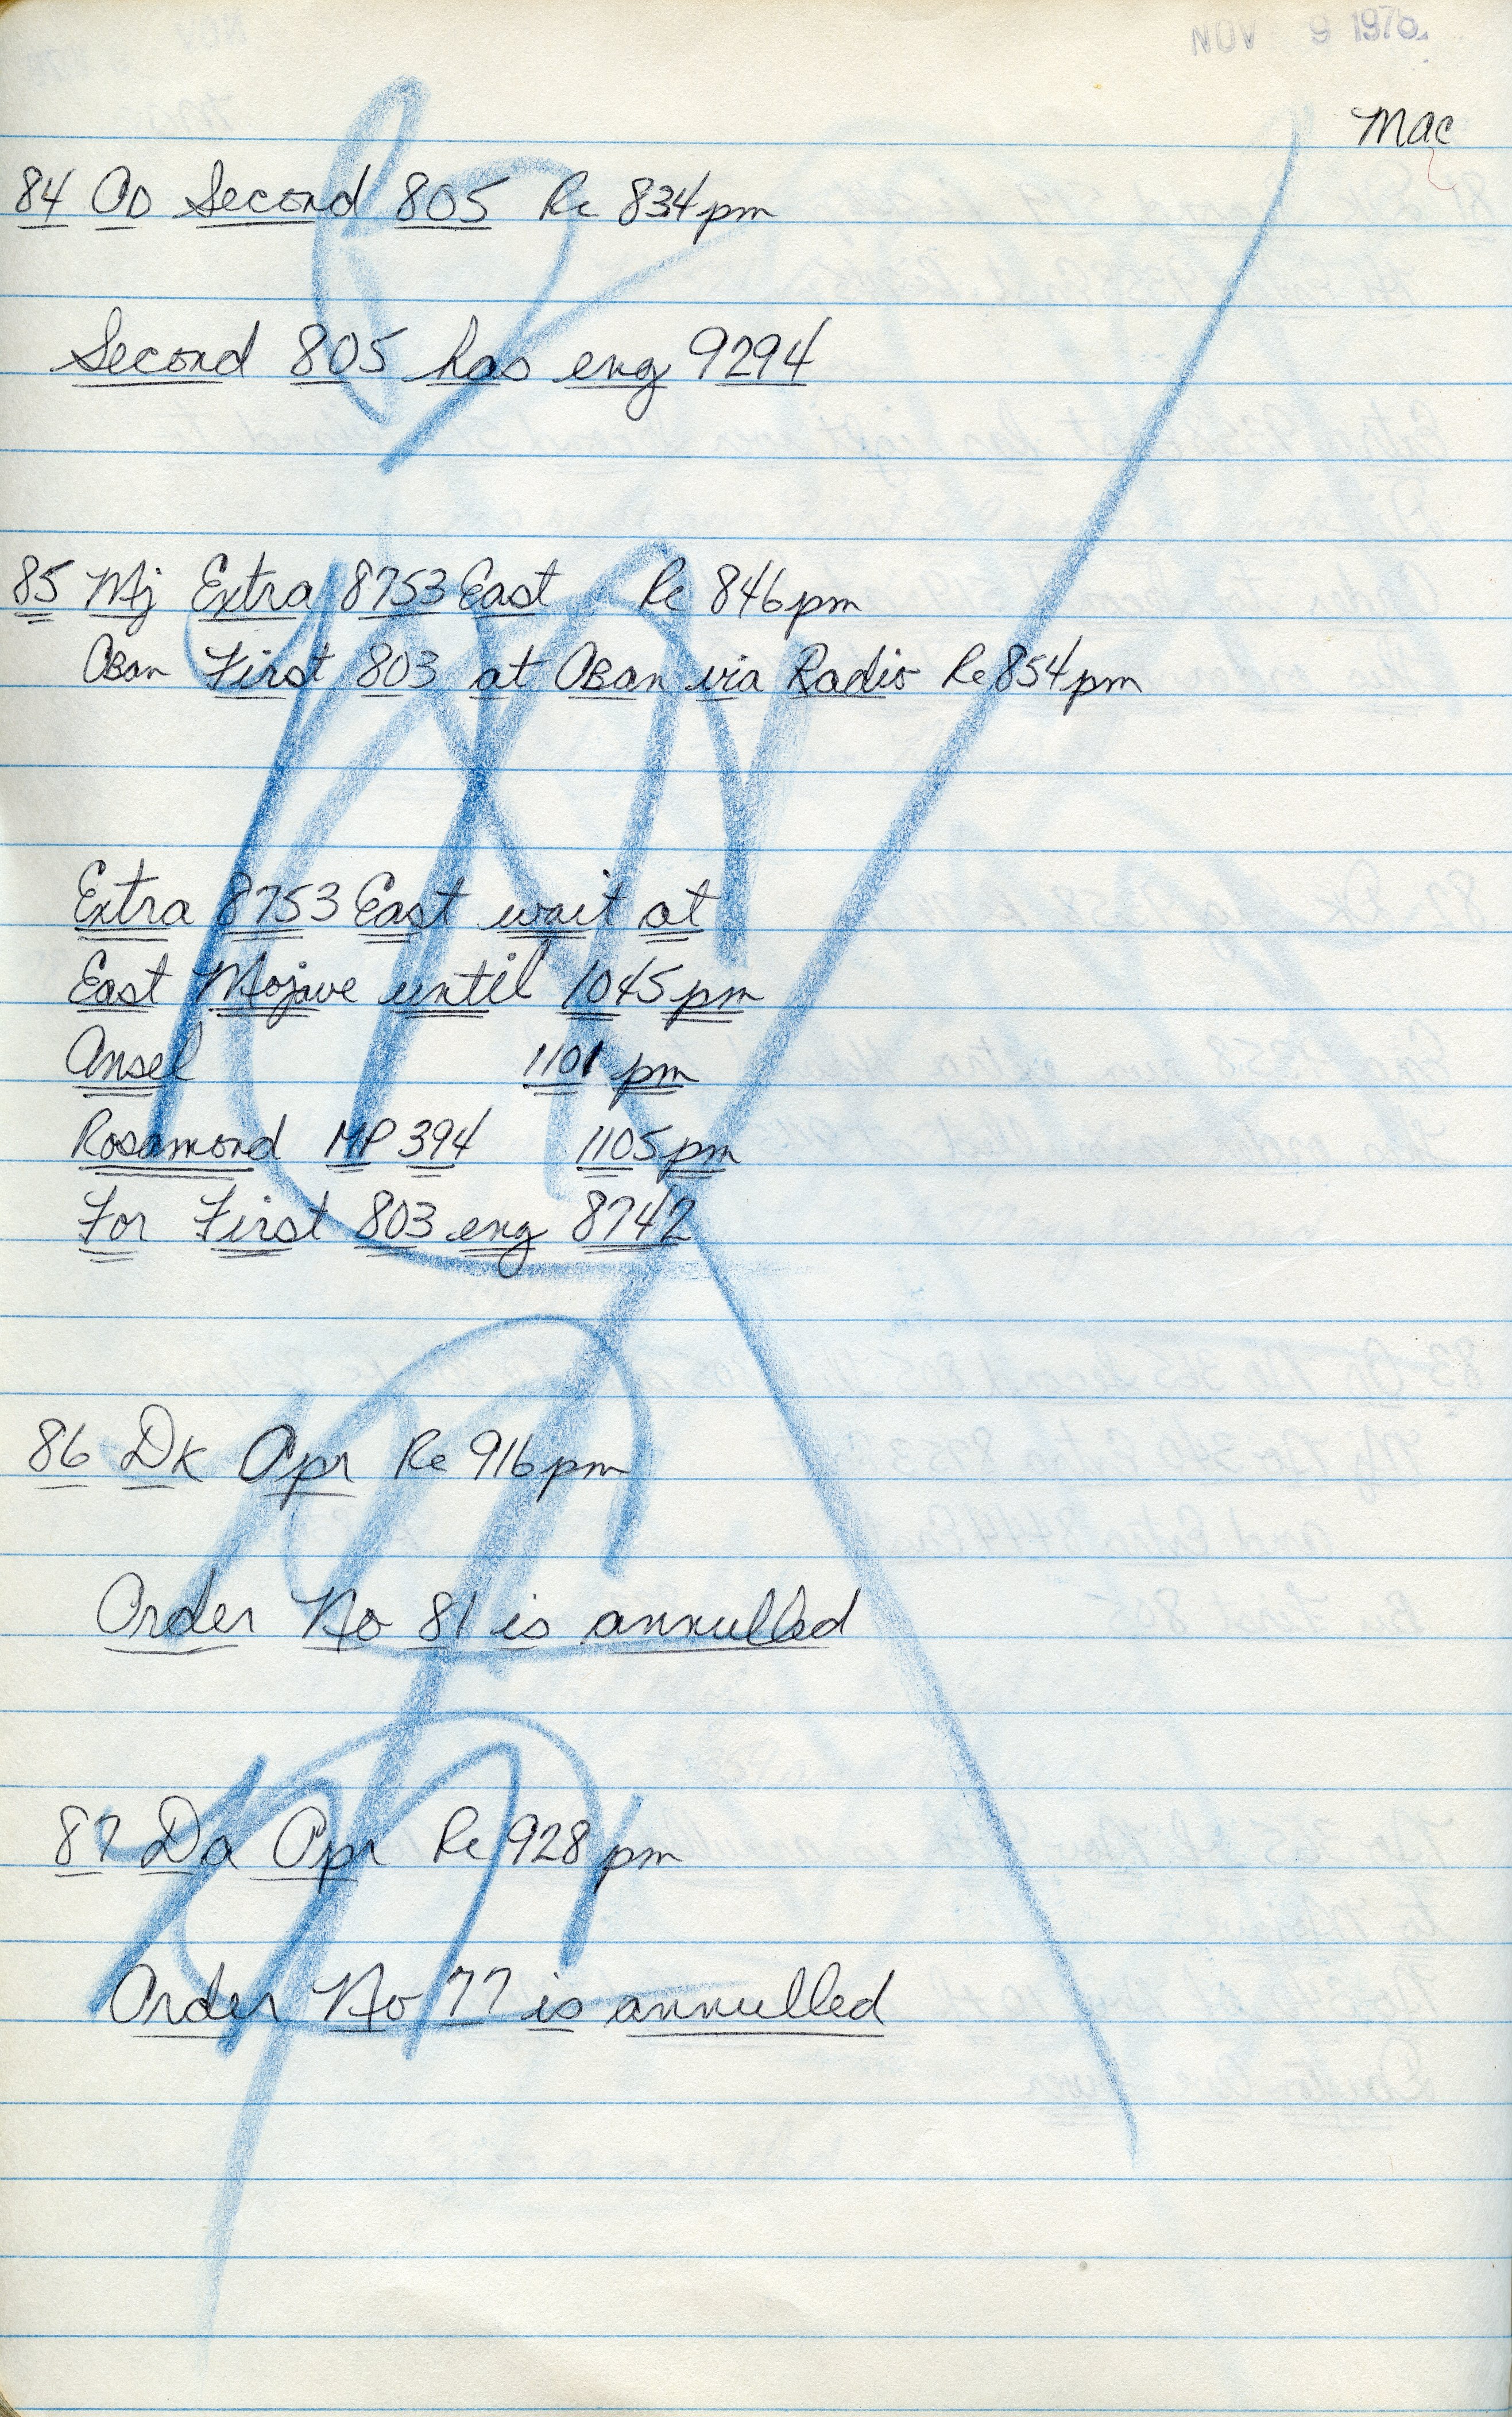 NOV 9 1976
Mac
84 OD Second 805 Re 834pm
Second 805 has eng 9294
85 Mj Extra 8753 East Re 846pm
OBan First 803 at OBan via Radio Re 854pm
Extra 8753 East wait at
East Mojave until 1045pm
Ansel 1101 pm
Rosamond MP 394 1105pm
For First 803 eng 8742
86 DK Opr Re 916pm
Order No 81 is annulled
87 Da Opr Re 928pm
Order No 77 is annulled